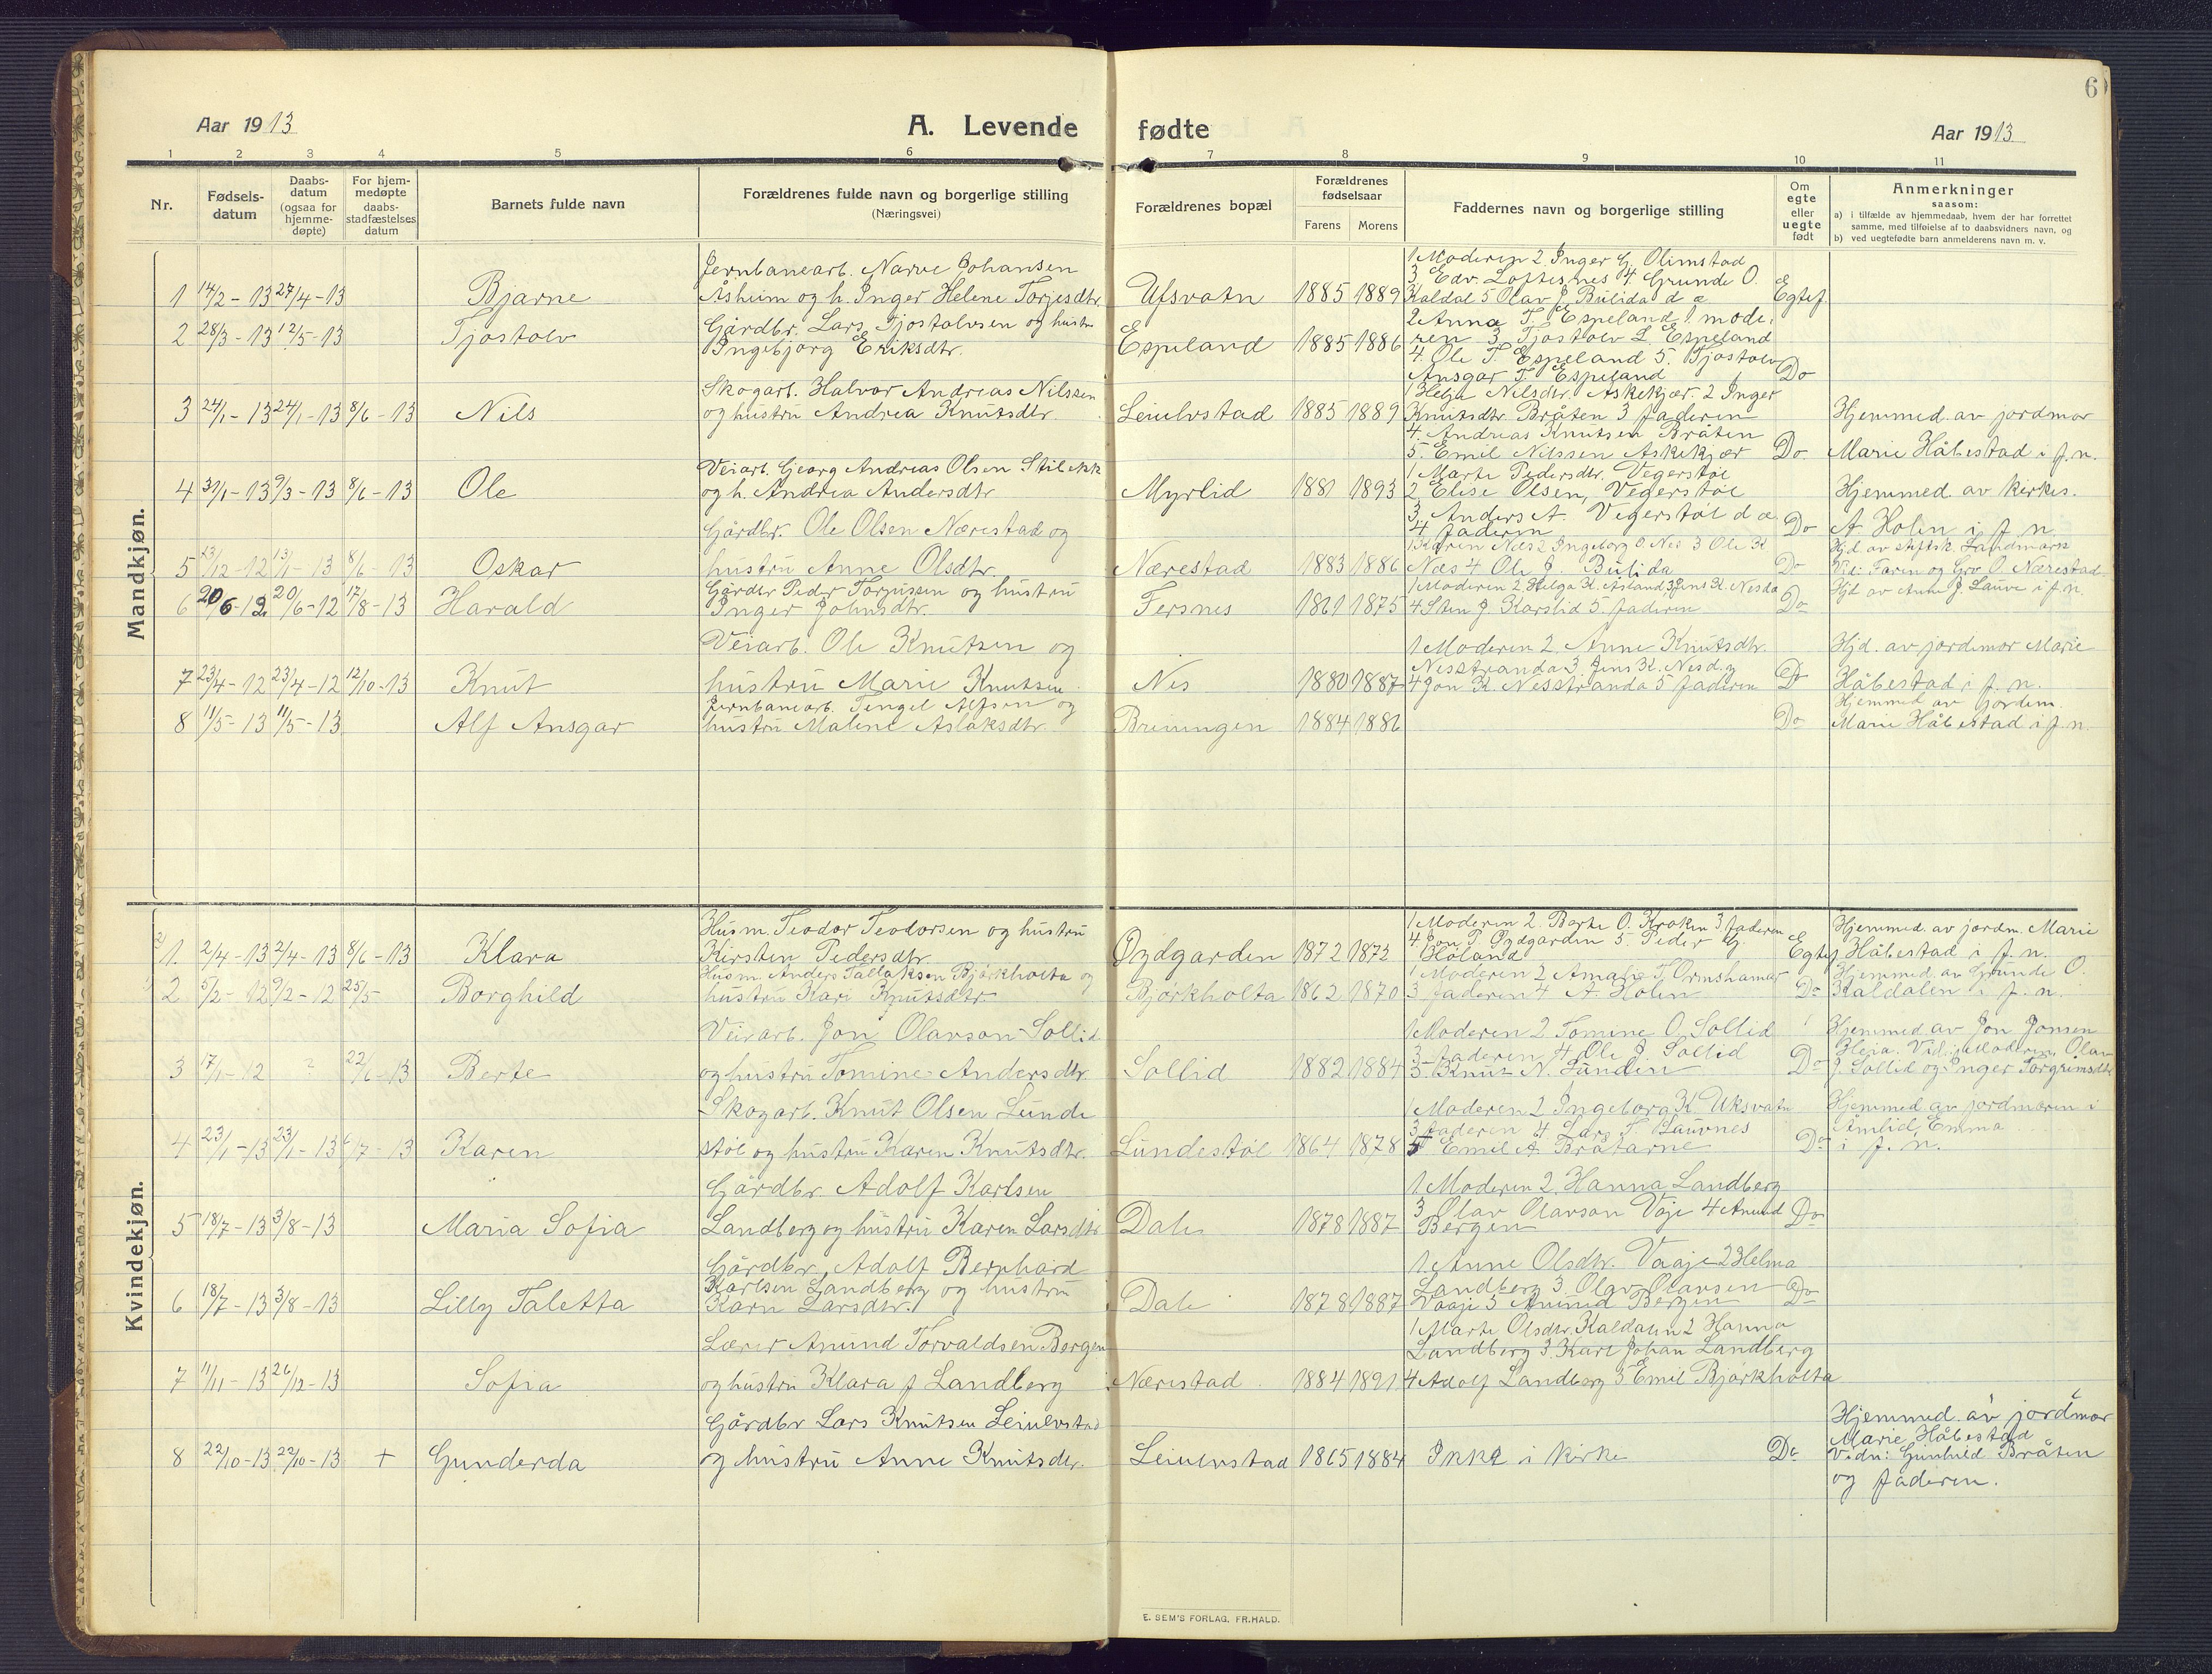 6
Aar 1913
A. Levende fødte
Aar 1913
1 2 3 4 5 6 7 8 9 10 11
Nr.
Fødsels-
datum
Daabs-
datum
(ogsaa for
hjemme-
døpte)
For hjem-
medøpte
daabs-
stadfæstelses
datum
Barnets fulde navn
Forældrenes fulde navn og borgerlige stilling
(Næringsvei)
Forældrenes bopæl
Forældrenes
fødselsaar
Farens Morens
Faddernes navn og borgerlige stilling
Om
egte
eller
uegte
født
Anmerkninger
saasom:
a) i tilfælde av hjemmedaab, hvem der har forrettet
samme, med tilføielse af to daabsvidners navn, og
b) ved uegtefødte barn anmelderens navn m. v.
Mandkjøn.
1 14/2-13 27/4-13 Bjarne
Jernbanearb. Narve Johansen
Åsheim og h. Inger Helene Torjesdtr.
Ufsvatn 1885 1889
1 Moderen 2 Inger G. Olimstad
3 Edv. Loftesnes 4. Grunde O.
Kaldal 5 Olav J. Bulida d æ
Egtef.
2 28/3-13 12/5-13 Tjostolv
Gårdbr. Lars Tjostolvsen og hustru
Ingebjørg Eriksdtr.
Espeland 1885 1886
2 Anna T. Espeland 1 mode-
ren 3 Tjostolv L. Espeland
4. Ole T. Espeland 5. Tjostolv
Ansgar T. Espeland
Do
3 24/1-13 24/1-13 8/6-13 Nils
Skogarb. Halvor Andreas Nilssen
og hustru Andrea Knutsdtr.
Leiulvstad 1885 1889
1 Helga Nilsdtr. Askekjær. 2 Inger
Knutsdtr. Bråten 3 faderen
4. Andreas Knutsen Bråten
5. Emil Nilssen Askekjær
Do
Hjemmed. av jordmor
Marie Håbestad i f. n.
4 31/1-13 9/3-13 8/6-13 Ole
Veiarb. Georg Andreas Olsen
og h. Andrea Andersdtr
Myrlid 1881 1893
1 Marte Pedersdtr. Vegerstøl
2 Elise Olsen, Vegerstøl
3. Anders A. Vegerstøl d æ
4 faderen
Do
Hjemmed. av kirkes.
A Holen i f. n.
5 13/12-12 13/1-13 8/6-13 Oskar
Gårdbr. Ole Olsen Nærestad og
hustru Anne Olsdtr.
Nærestad 1883 1886
1 Karen Næs 2 Ingeborg O. Nes 3 Ole K
Næs 4 Ole J. Bulida
Do
Hjd av skiftsk. Landmark
Vid: Faren og Gro O. Nærestad
6 20/6-12 20/6-12 17/8-13 Harald
Gårdbr Peder Torjussen og hustru
Inger Johnsdtr.
Fersnes 1861 1875
1 Moderen 2 Helga K. 3 Jens K. Nesda
4 Sten J. Karslid 5. faderen
Do
Hjd av Anne J. Lauve i f. n.
7 23/4-12 23/4-12 12/10-13 Knut
Veiarb. Ole Knutsen og
hustru Marie Knutsen
Nes 1880 1887
1 Moderen 2. Anne Knutsdtr.
Nesstranda 3 Jens K. Nes d. y
4 Jon K. Nesstranda 5 faderen
Do
Hjd. av jordmor Marie
Håbestad i f. n.
8 11/5-13 11/5-13 Alf Ansgar
Jernbanearb. Tengel Alfsen og
hustru Malene Aslaksdtr.
Breiungen 1884 1886
Do
Hjemmed av jordem.
Marie Håbestad i f. n.
Kvindekjøn.
1. 2/4-13 2/4-13 8/6-13 Klara
Husm. Teodor Teodorsen og hustru
Kirsten Pedersdtr.
Øydgarden 1872 1872
1 Moderen 2. Berte O. Kroken 3. faderen
4. Jon P. Øydgarden 5. Peder G.
Høland
Egtef
Hjemmed. av jordm. Marie
Håbestad i f. n.
2 5/2-12 9/2-12 25/5- Borghild
Husm. Anders Tallaksen Bjørkholta og
hustru Kari Knutsdtr.
Bjørkholta 1862 1870
1 Moderen 2 Amalie T. Ormshamar
3 faderen 4 A. Holen
Do
Hjemmed. av Grunde O.
Kaldalen i f. n.
3 17/1-12 ? 22/6-13 Berte
Veiarb. Jon Olavson Sollid
og hustru Tomine Andersdtr.
Sollid 1882 1884
1 Moderen 2 Tomine O. Sollid
3 faderen 4 Ole J. Sollid
5 Knut N. Sanden
Do
Hjemmed av Jon Jonsen
Heia. Vid.: Moderen, Olav
J. Sollid og Inger Torgrimsdtr
4 23/1-13 23/1-13 6/7-13 Karen
Skogarb. Knut Olsen Lunde
støl og hustru Karen Knutsdtr.
Lundestøl 1864 1878
1 Moderen 2 Ingeborg K. Uksvatn
3 faderen 4. Lars T. Lauvnes
5 Emil A Bråtarne
Do
Hjemmed av jordmoren i
Åmlid, Emma
i f. n.
5 18/7-13 3/8-13 Maria Sofia
Gårdbr. Adolf Karlsen
Landberg og hustru Karen Larsdtr
Dale 1878 1887
1 Moderen 2. Hanna Landberg
3 Olav Olavson Vaje 4 Anund
Bergen
Do
6 18/7-13 3/8-13 Lilly Taletta
Gårdbr. Adolf Bernhard
Karlsen Landberg og hustru
Karn Larsdtr.
Dale 1878 1887
1 Anne Olsdtr. Vaaje 2 Helma
Landberg 3. Olav Olavsen
Vaaje 5 Anund Bergen
Do
7 11/11-13 26/12-13 Sofia
Lærer Anund Torvaldsen Bergen
og hustru Klara f Landberg
Nærestad 1884 1891
1 Marte Olsdtr. Kaldalen 2 Hanna
Landberg 3. Karl Johan Landberg
4 Adolf Landberg 5 Emil Bjørkholta
8 22/10-13 22/10-13 + Gunderda
Gårdbr Lars Knutsen Leiulvstad
og hustru Anne Knutsdtr.
Leiulvstad 1865 1884
Ikke i kirke
Do
Hjemmed. av jordmor
Marie Håbestad
Vidn: Gunhild Bråten
og faderen.
E. SEM'S FORLAG, FR.HALD.